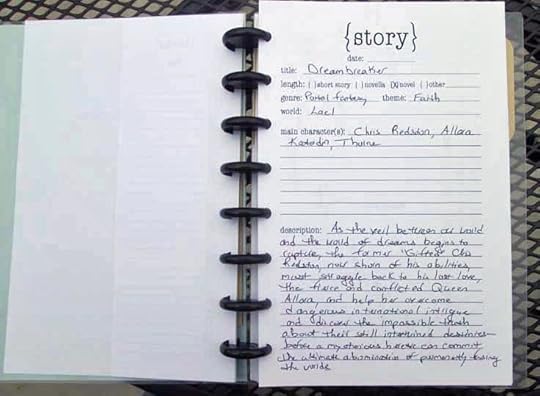 {story}
date:
title: Dreambreaker
length: ( )short story ( )novella (X)novel ( )other
genre: Portal fantasy theme: Faith
world: Lael
main character(s): Chris Redston, Allara
Thurne
description: As the veil between our world
and the world of dreams begins to
rupture, the former "Gifted" Chris
Redston, now shorn of his abilities,
must struggle back to his lost love,
the fierce and conflicted Queen
Allara, and help her overcome
dangerous international intrigue
and discover the impossible truth
about their still intertwined destinies—
before a mysterious heretic can commit
the ultimate abomination of permanently fusing
the worlds